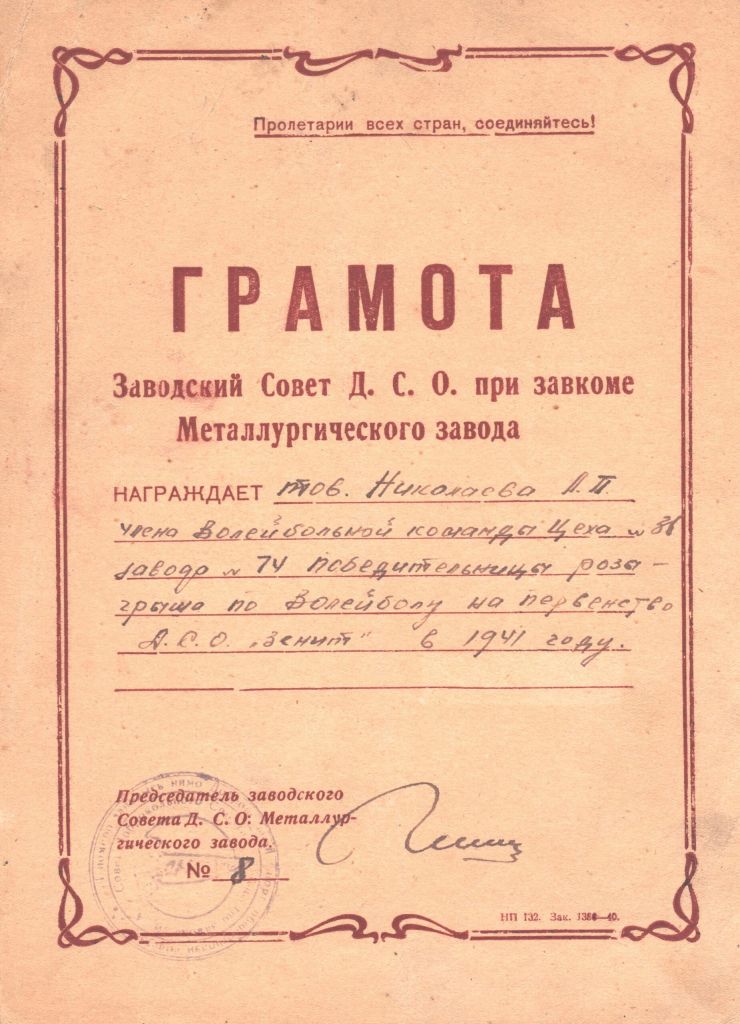 Пролетарии всех стран, соединяйтесь!
ГРАМОТА
Заводский Совет Д. С. О. при завкоме
Металлургического завода
НАГРАЖДАЕТ тов. Николаева П.
члена Волейбольной команды Цеха №
завода № 74 победительницы розы-
грыша по Волейболу на первенство
Д.С.О. „Зенит" в 1941 году.
Председатель заводского
Совета Д. С. О: Металлур-
гического завода.
№ 8
НП 132. Зак.